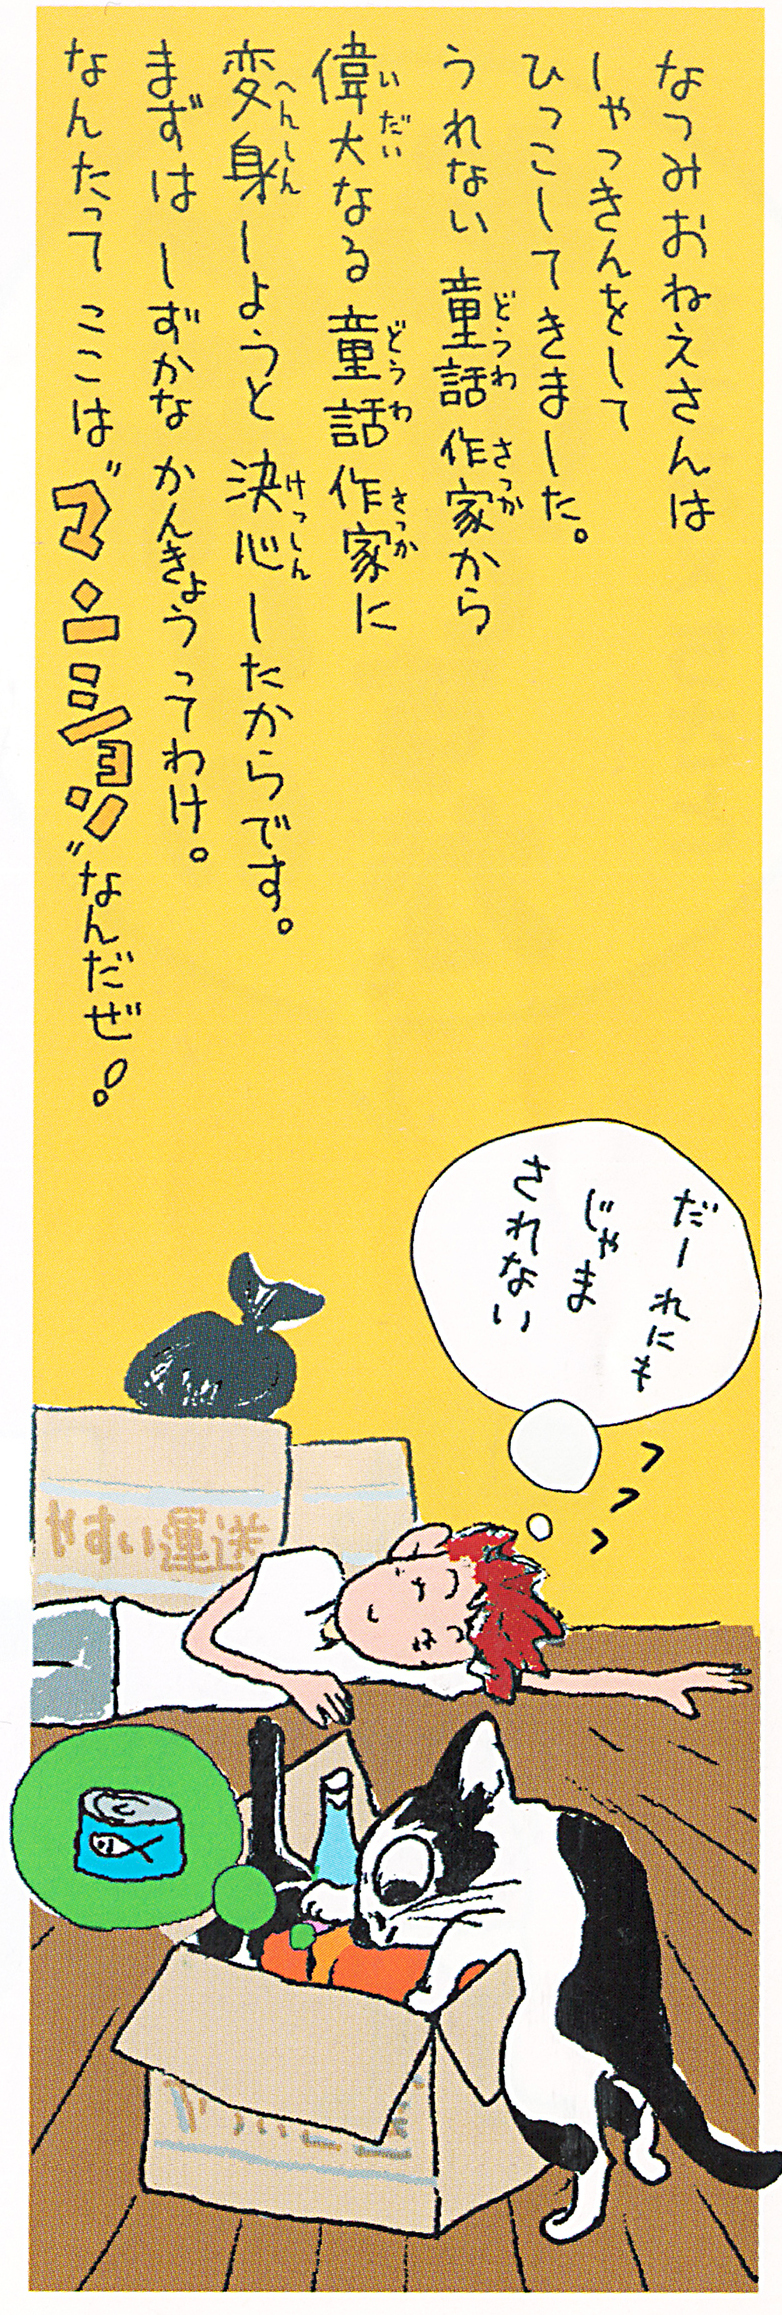 なつみおねえさんは
しゃっきんをして
ひっこしてきました。
うれない 童話作家から
偉大なる 童話作家に
変身しようと 決心したからです。
まずは しずかな かんきょうってわけ。
なんたって ここは〝マンション〟なんだぜ!
どうわ さっか
いだい どうわ さっか
へんしん けっしん
だーれにも
じゃま
されない
やすい運送